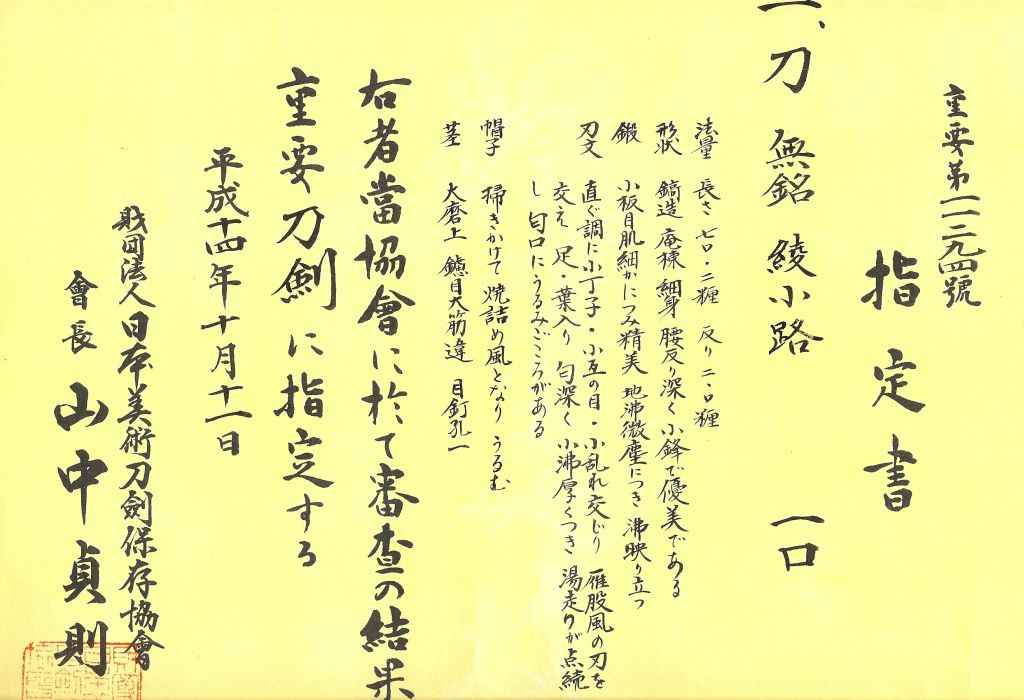 重要第一一二九四號
指定書
一、刀 無銘 綾小路 一口
法量 長さ 七〇・二糎 反り 二・〇糎
形状 鎬造 庵棟 細身 腰反り深く 小鋒で優美である
鍛 小板目肌細かにつみ精美 地沸微塵につき 沸映り立つ
刃文 直ぐ調に小丁子・小互の目・小乱れ交じり 雁股風の刃を
交え 足・葉入り 匂深く 小沸厚くつき 湯走りが点続
し 匂口にうるみごころがある
帽子 掃きかけて 焼詰め風となり うるむ
茎 大磨上 鑢目大筋違 目釘孔一
右者當協會に於て審査の結果
重要刀剣に指定する
平成十四年十月十一日
財団法人日本美術刀劍保存協會
會長 山中貞則